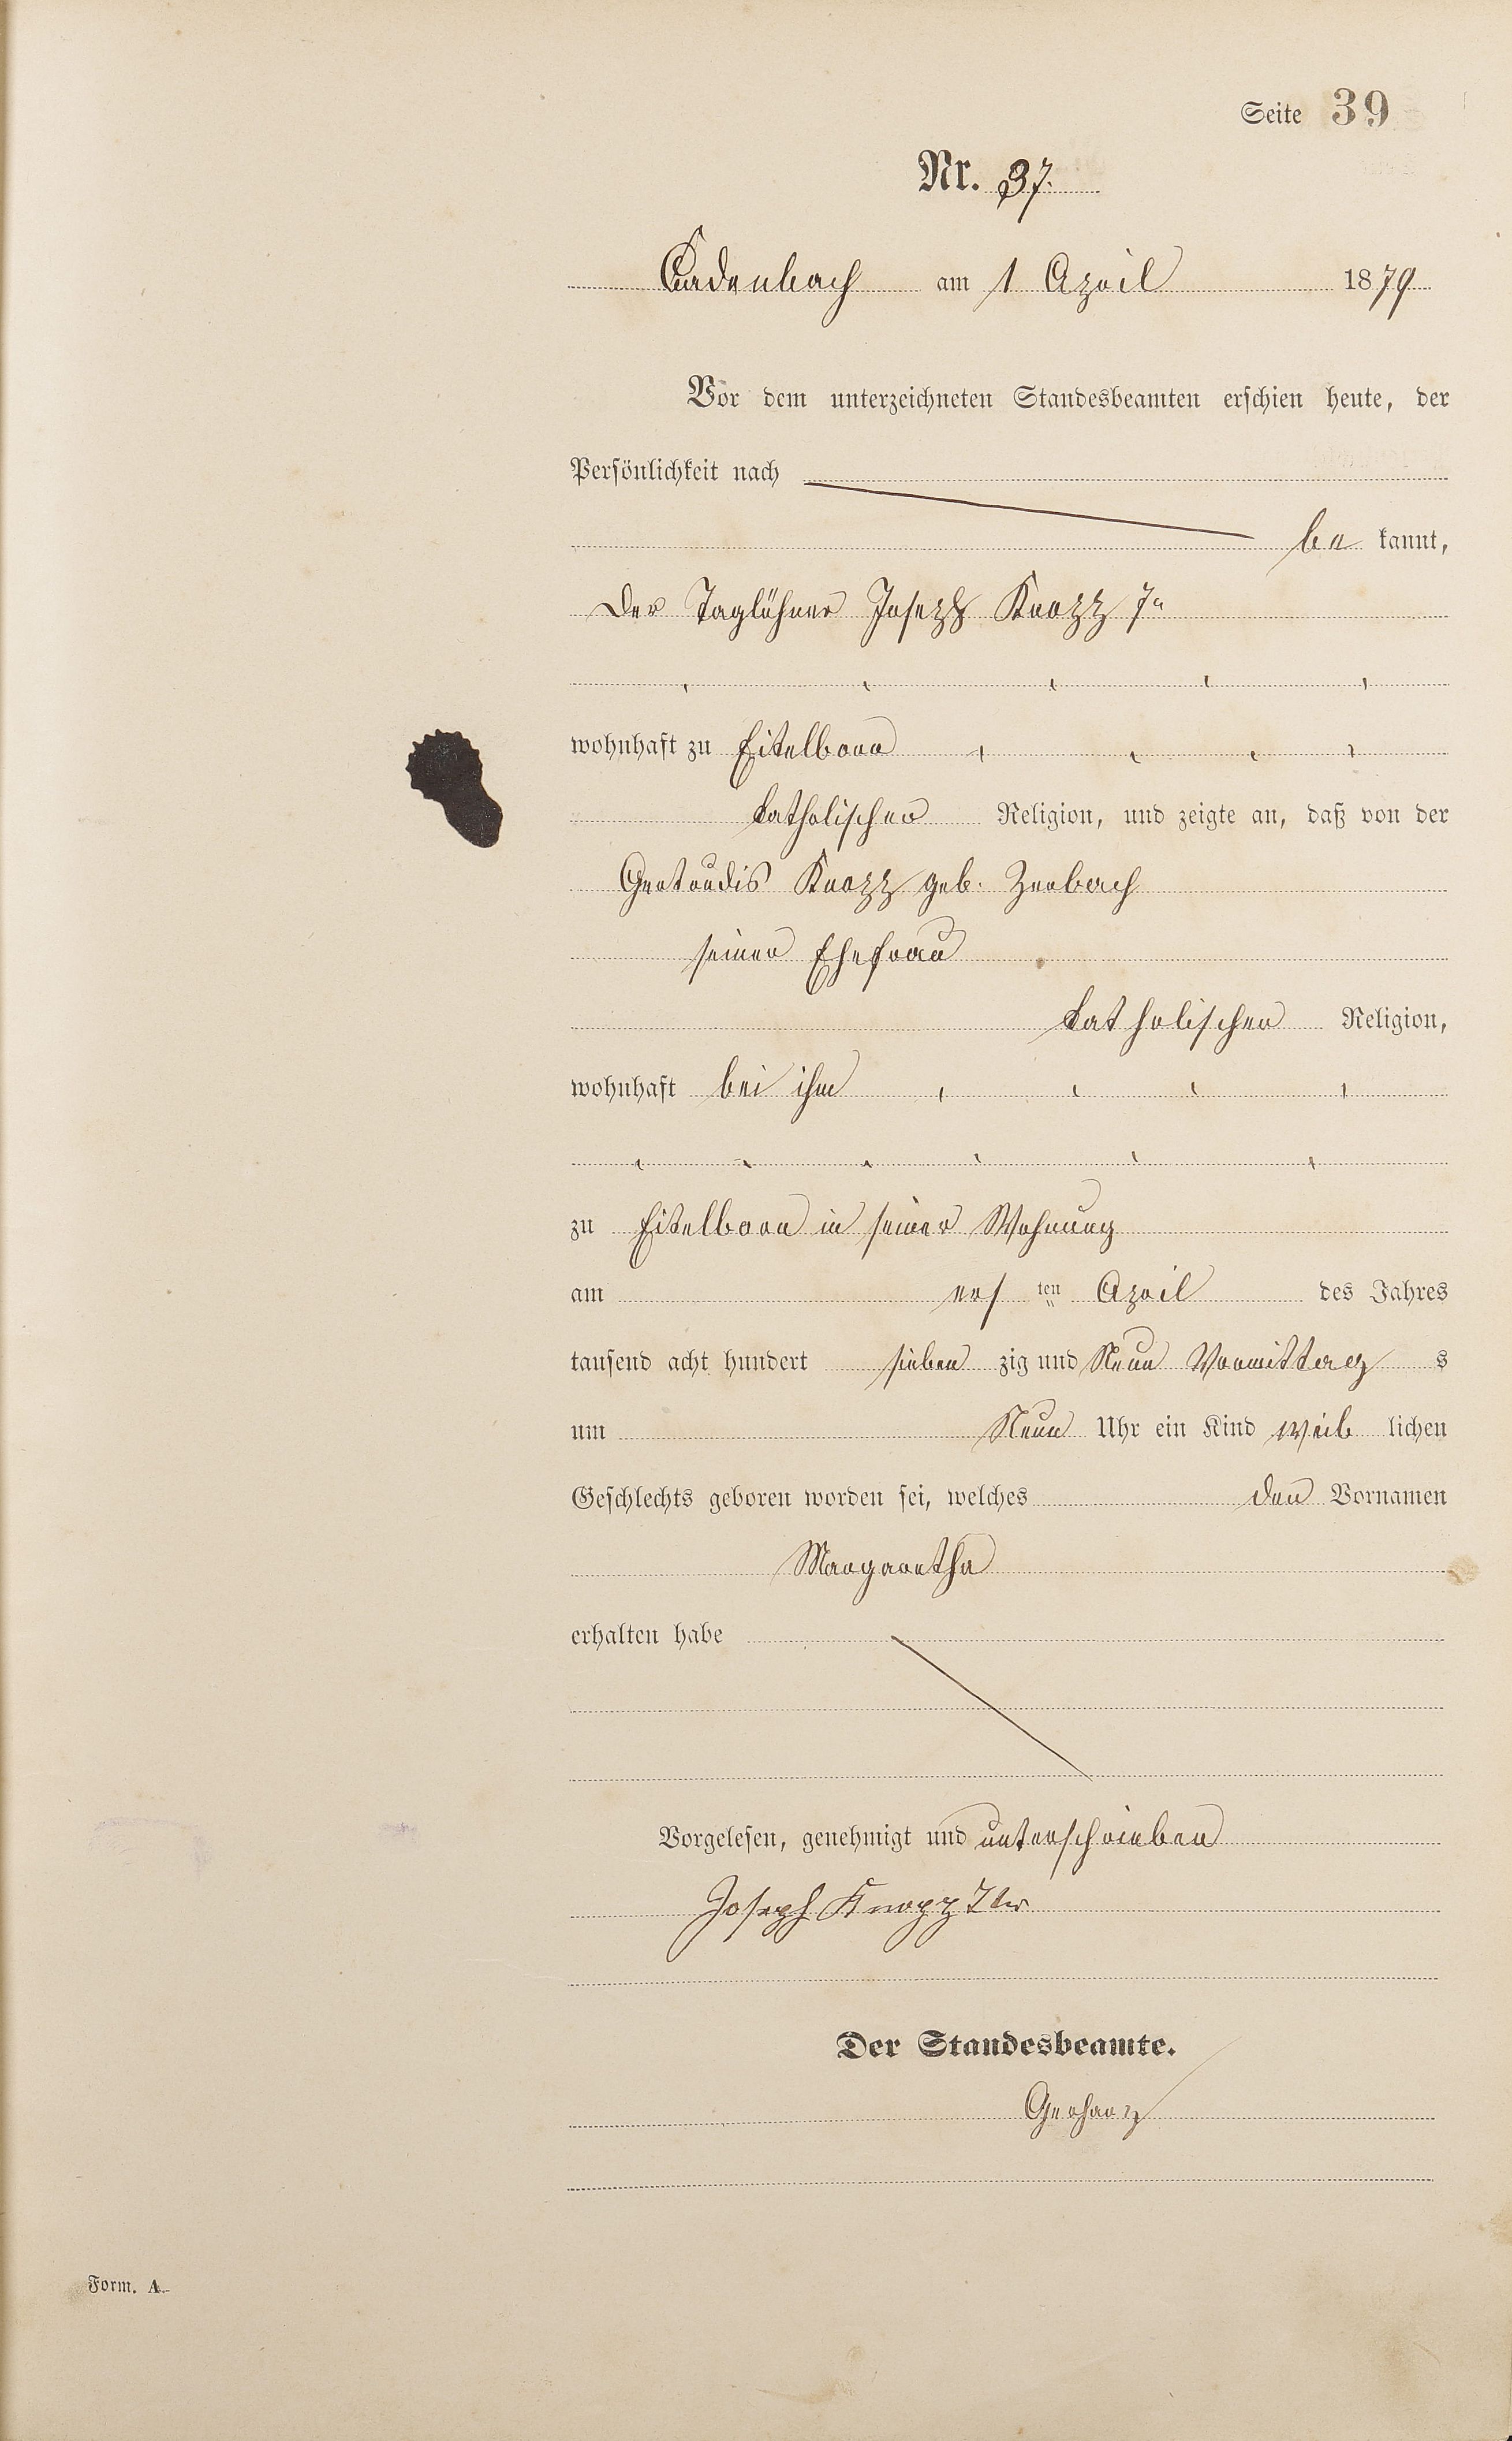 Seite 39
Nr. 37.
Cadenbach am 1 April 1879
Vor dem unterzeichneten Standesbeamten erschien heute, der
Persönlichkeit nach
be kannt,
Der Taglöhner Joseph Knopp 7r
wohnhaft zu Eitelborn
katholischer Religion, und zeigte an, daß von der
Gertrudis Knopp geb. Zerbach
seiner Ehefrau
katholischer Religion,
wohnhaft bei ihm
zu Eitelborn in seiner Wohnung
am ersten April des Jahres
tausend acht hundert sieben zig und Neun Vormittag s
um Neun Uhr ein Kind weib lichen
Geschlechts geboren worden sei, welches den Vornamen
Margaretha
erhalten habe
Vorgelesen, genehmigt und unterschrieben
Joseph Knopp 7ter
Der Standesbeamte.
Gerharz
Form. A.